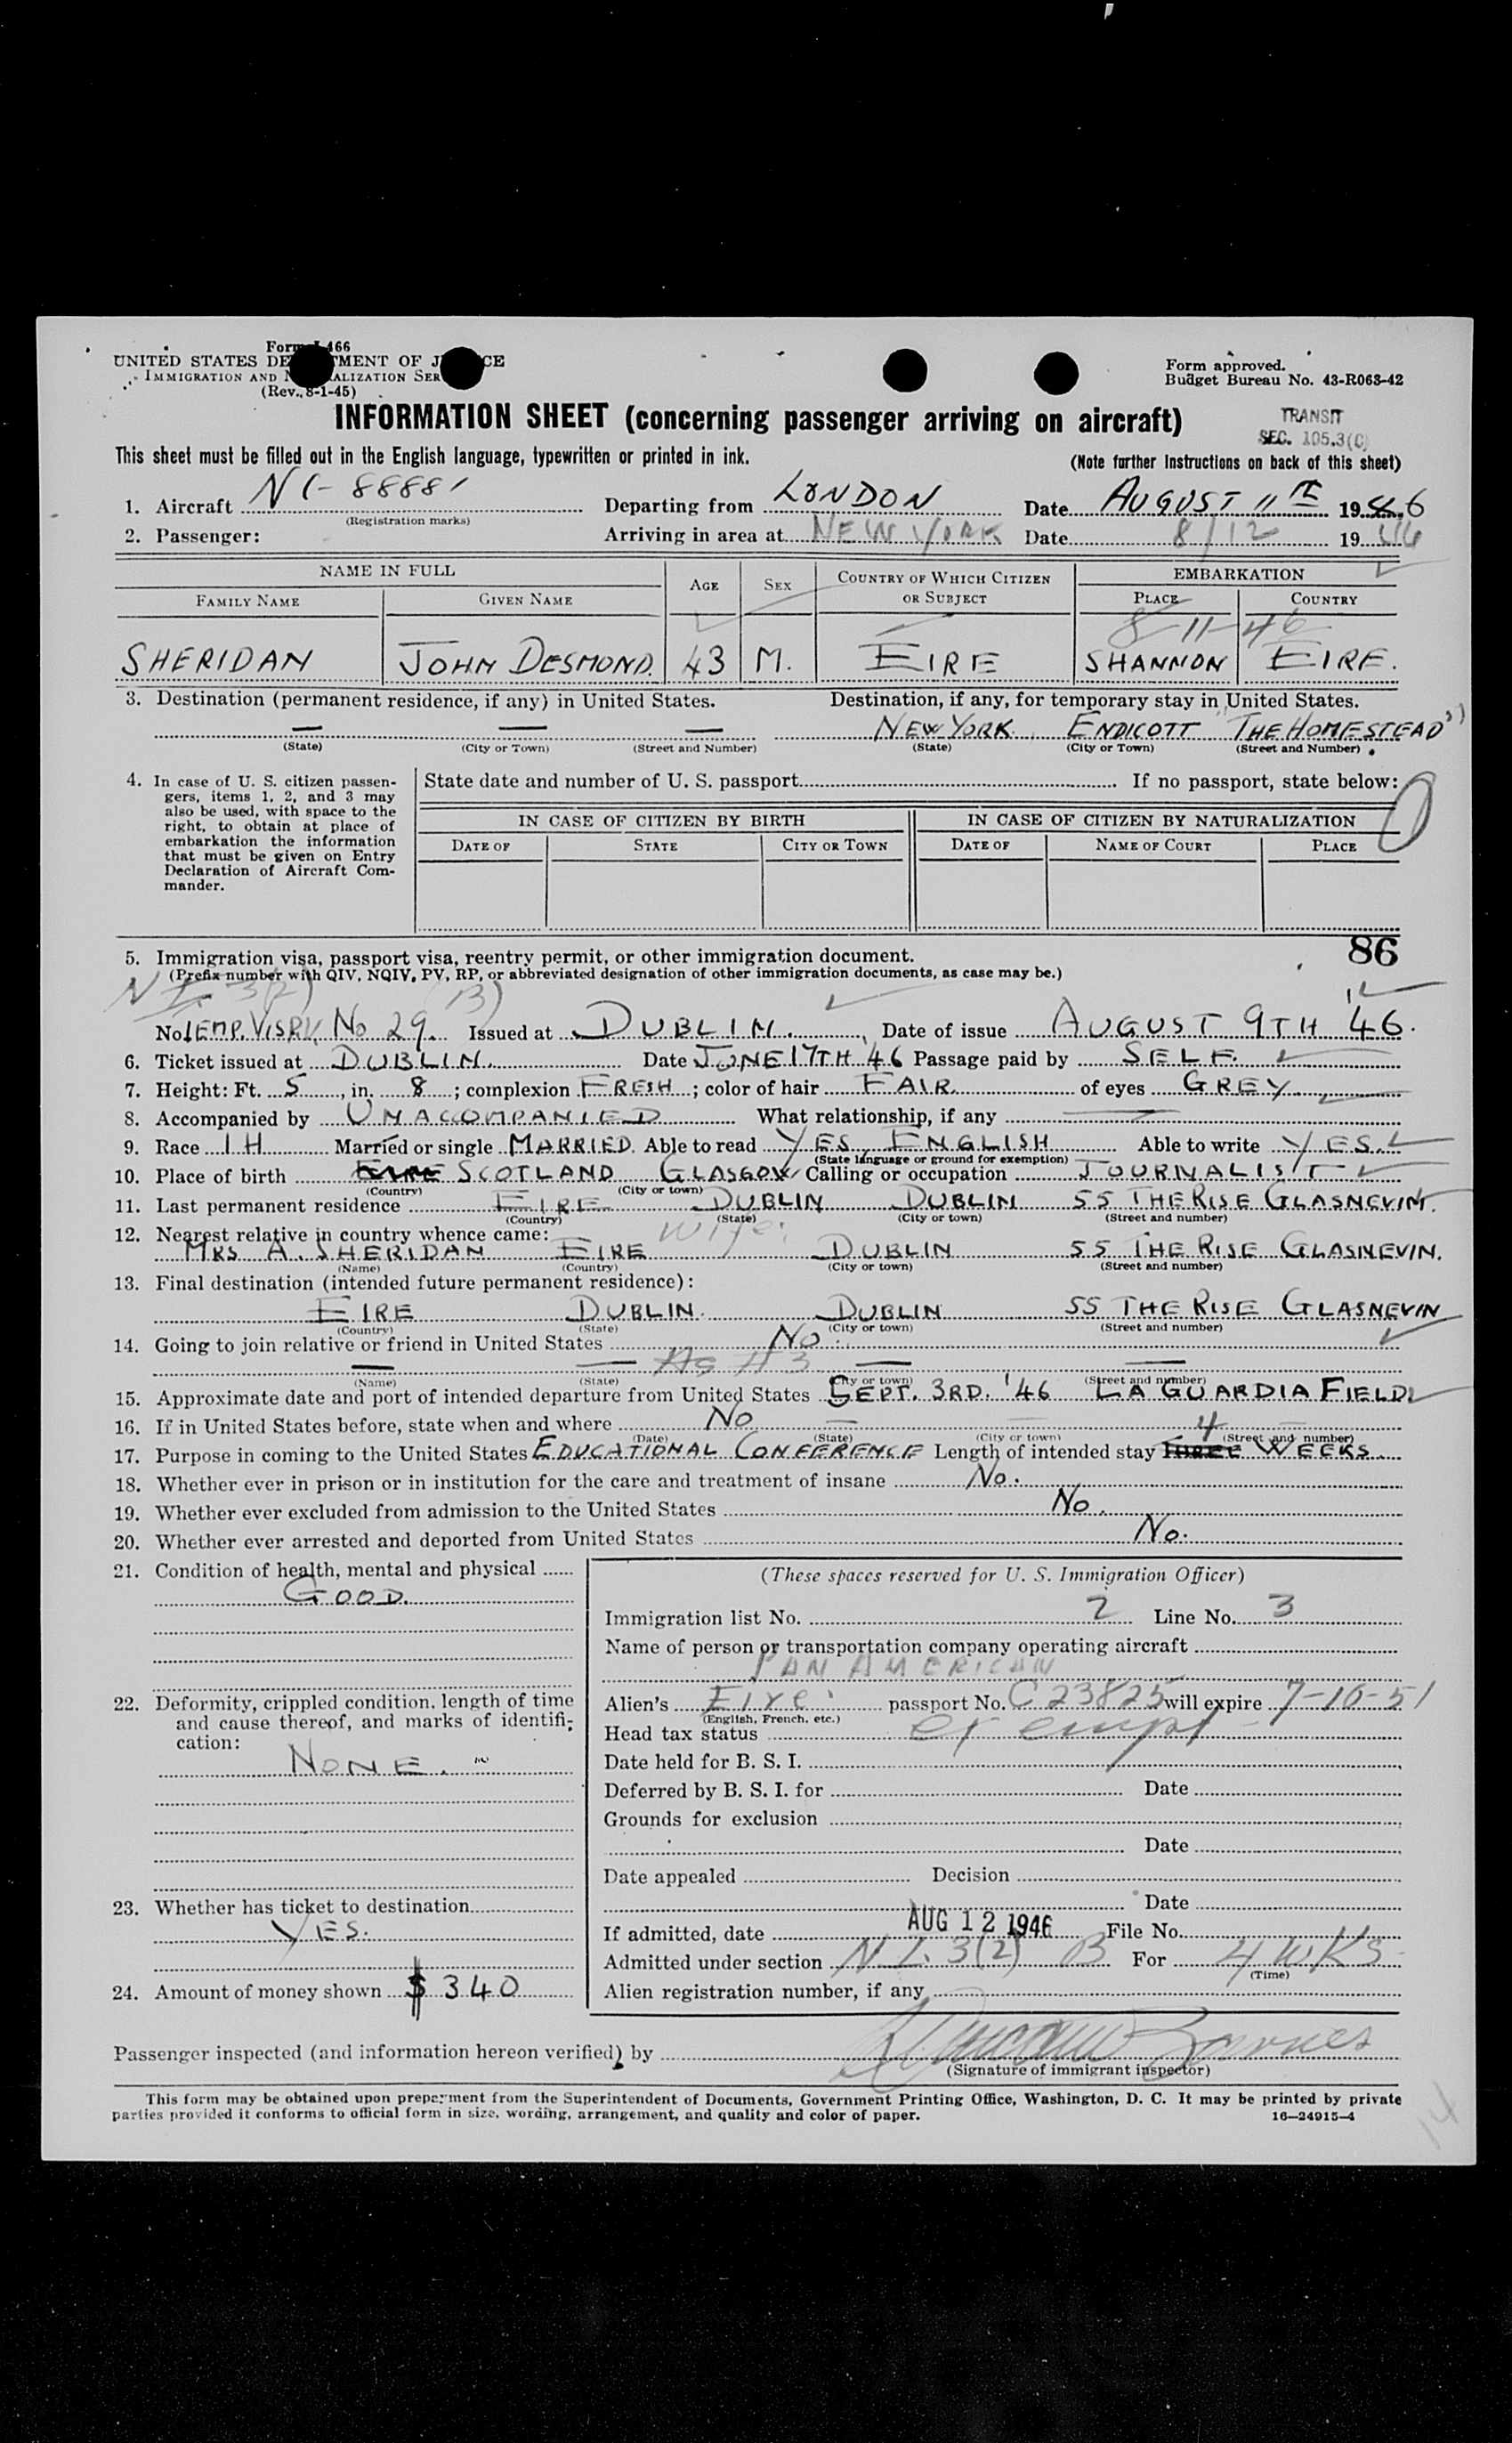 Form I-466
UNITED STATES DEPARTMENT OF JUSTICE
IMMIGRATION AND NATURALIZATION SERVICE
(Rev. 8-1-45)
Form approved.
Budget Bureau No. 43-R063-42
INFORMATION SHEET (concerning passenger arriving on aircraft)
TRANSIT
SEC. 105.3(C)
This sheet must be filled out in the English language, typewritten or printed in ink.
(Note further instructions on back of this sheet)
1. Aircraft NC-88881 Departing from LONDON Date AUGUST 11TH 1946
(Registration marks)
2. Passenger: Arriving in area at NEW YORK Date 8/12 1946
NAME IN FULL AGE SEX COUNTRY OF WHICH CITIZEN OR SUBJECT EMBARKATION
FAMILY NAME GIVEN NAME PLACE COUNTRY
8-11-46
SHERIDAN JOHN DESMOND. 43 M. EIRE SHANNON EIRE.
3. Destination (permanent residence, if any) in United States. Destination, if any, for temporary stay in United States.
— — — NEW YORK ENDICOTT "THE HOMESTEAD"
(State) (City or Town) (Street and Number) (State) (City or Town) (Street and Number)
4. In case of U. S. citizen passengers, items 1, 2, and 3 may also be used, with space to the right, to obtain at place of embarkation the information that must be given on Entry Declaration of Aircraft Commander.
State date and number of U. S. passport If no passport, state below:
IN CASE OF CITIZEN BY BIRTH IN CASE OF CITIZEN BY NATURALIZATION
DATE OF STATE CITY OR TOWN DATE OF NAME OF COURT PLACE
86
5. Immigration visa, passport visa, reentry permit, or other immigration document.
(Prefix number with QIV, NQIV, PV, RP, or abbreviated designation of other immigration documents, as case may be.)
3(2) B)
No. TEMP. VISRV. No 29. Issued at DUBLIN. Date of issue AUGUST 9TH '46.
6. Ticket issued at DUBLIN. Date JUNE 17TH 46 Passage paid by SELF.
7. Height: Ft. 5, in. 8; complexion FRESH; color of hair FAIR of eyes GREY
8. Accompanied by UNACCOMPANIED What relationship, if any —
9. Race IH Married or single MARRIED. Able to read YES, ENGLISH Able to write YES.
(State language or ground for exemption)
10. Place of birth EIRE SCOTLAND GLASGOW Calling or occupation JOURNALIST
(Country) (City or town)
11. Last permanent residence EIRE DUBLIN DUBLIN 55 THE RISE GLASNEVIN.
(Country) (State) (City or town) (Street and number)
12. Nearest relative in country whence came: Wife:
MRS A. SHERIDAN EIRE DUBLIN 55 THE RISE GLASNEVIN.
(Name) (Country) (City or town) (Street and number)
13. Final destination (intended future permanent residence):
EIRE DUBLIN. DUBLIN 55 THE RISE GLASNEVIN
(Country) (State) (City or town) (Street and number)
14. Going to join relative or friend in United States No.
— — As # 3 — —
(Name) (State) (City or town) (Street and number)
15. Approximate date and port of intended departure from United States SEPT. 3RD. '46 LA GUARDIA FIELD.
16. If in United States before, state when and where No — — —
(Date) (State) (City or town) (Street and number)
17. Purpose in coming to the United States EDUCATIONAL CONFERENCE Length of intended stay THREE 4 WEEKS.
18. Whether ever in prison or in institution for the care and treatment of insane No.
19. Whether ever excluded from admission to the United States No.
20. Whether ever arrested and deported from United States No.
21. Condition of health, mental and physical
GOOD.
22. Deformity, crippled condition, length of time and cause thereof, and marks of identification:
NONE.
23. Whether has ticket to destination
YES.
24. Amount of money shown $340
(These spaces reserved for U. S. Immigration Officer)
Immigration list No. 2 Line No. 3
Name of person or transportation company operating aircraft
PAN AMERICAN
Alien's Eire passport No. C23825 will expire 7-16-51
(English, French, etc.)
Head tax status exempt
Date held for B. S. I.
Deferred by B. S. I. for Date
Grounds for exclusion
Date
Date appealed Decision
Date
If admitted, date AUG 12 1946 File No.
Admitted under section 3(2) B For 4 WKS
(Time)
Alien registration number, if any
Passenger inspected (and information hereon verified) by Barnes
(Signature of immigrant inspector)
This form may be obtained upon prepayment from the Superintendent of Documents, Government Printing Office, Washington, D. C. It may be printed by private
parties provided it conforms to official form in size, wording, arrangement, and quality and color of paper. 16—24915-4
14